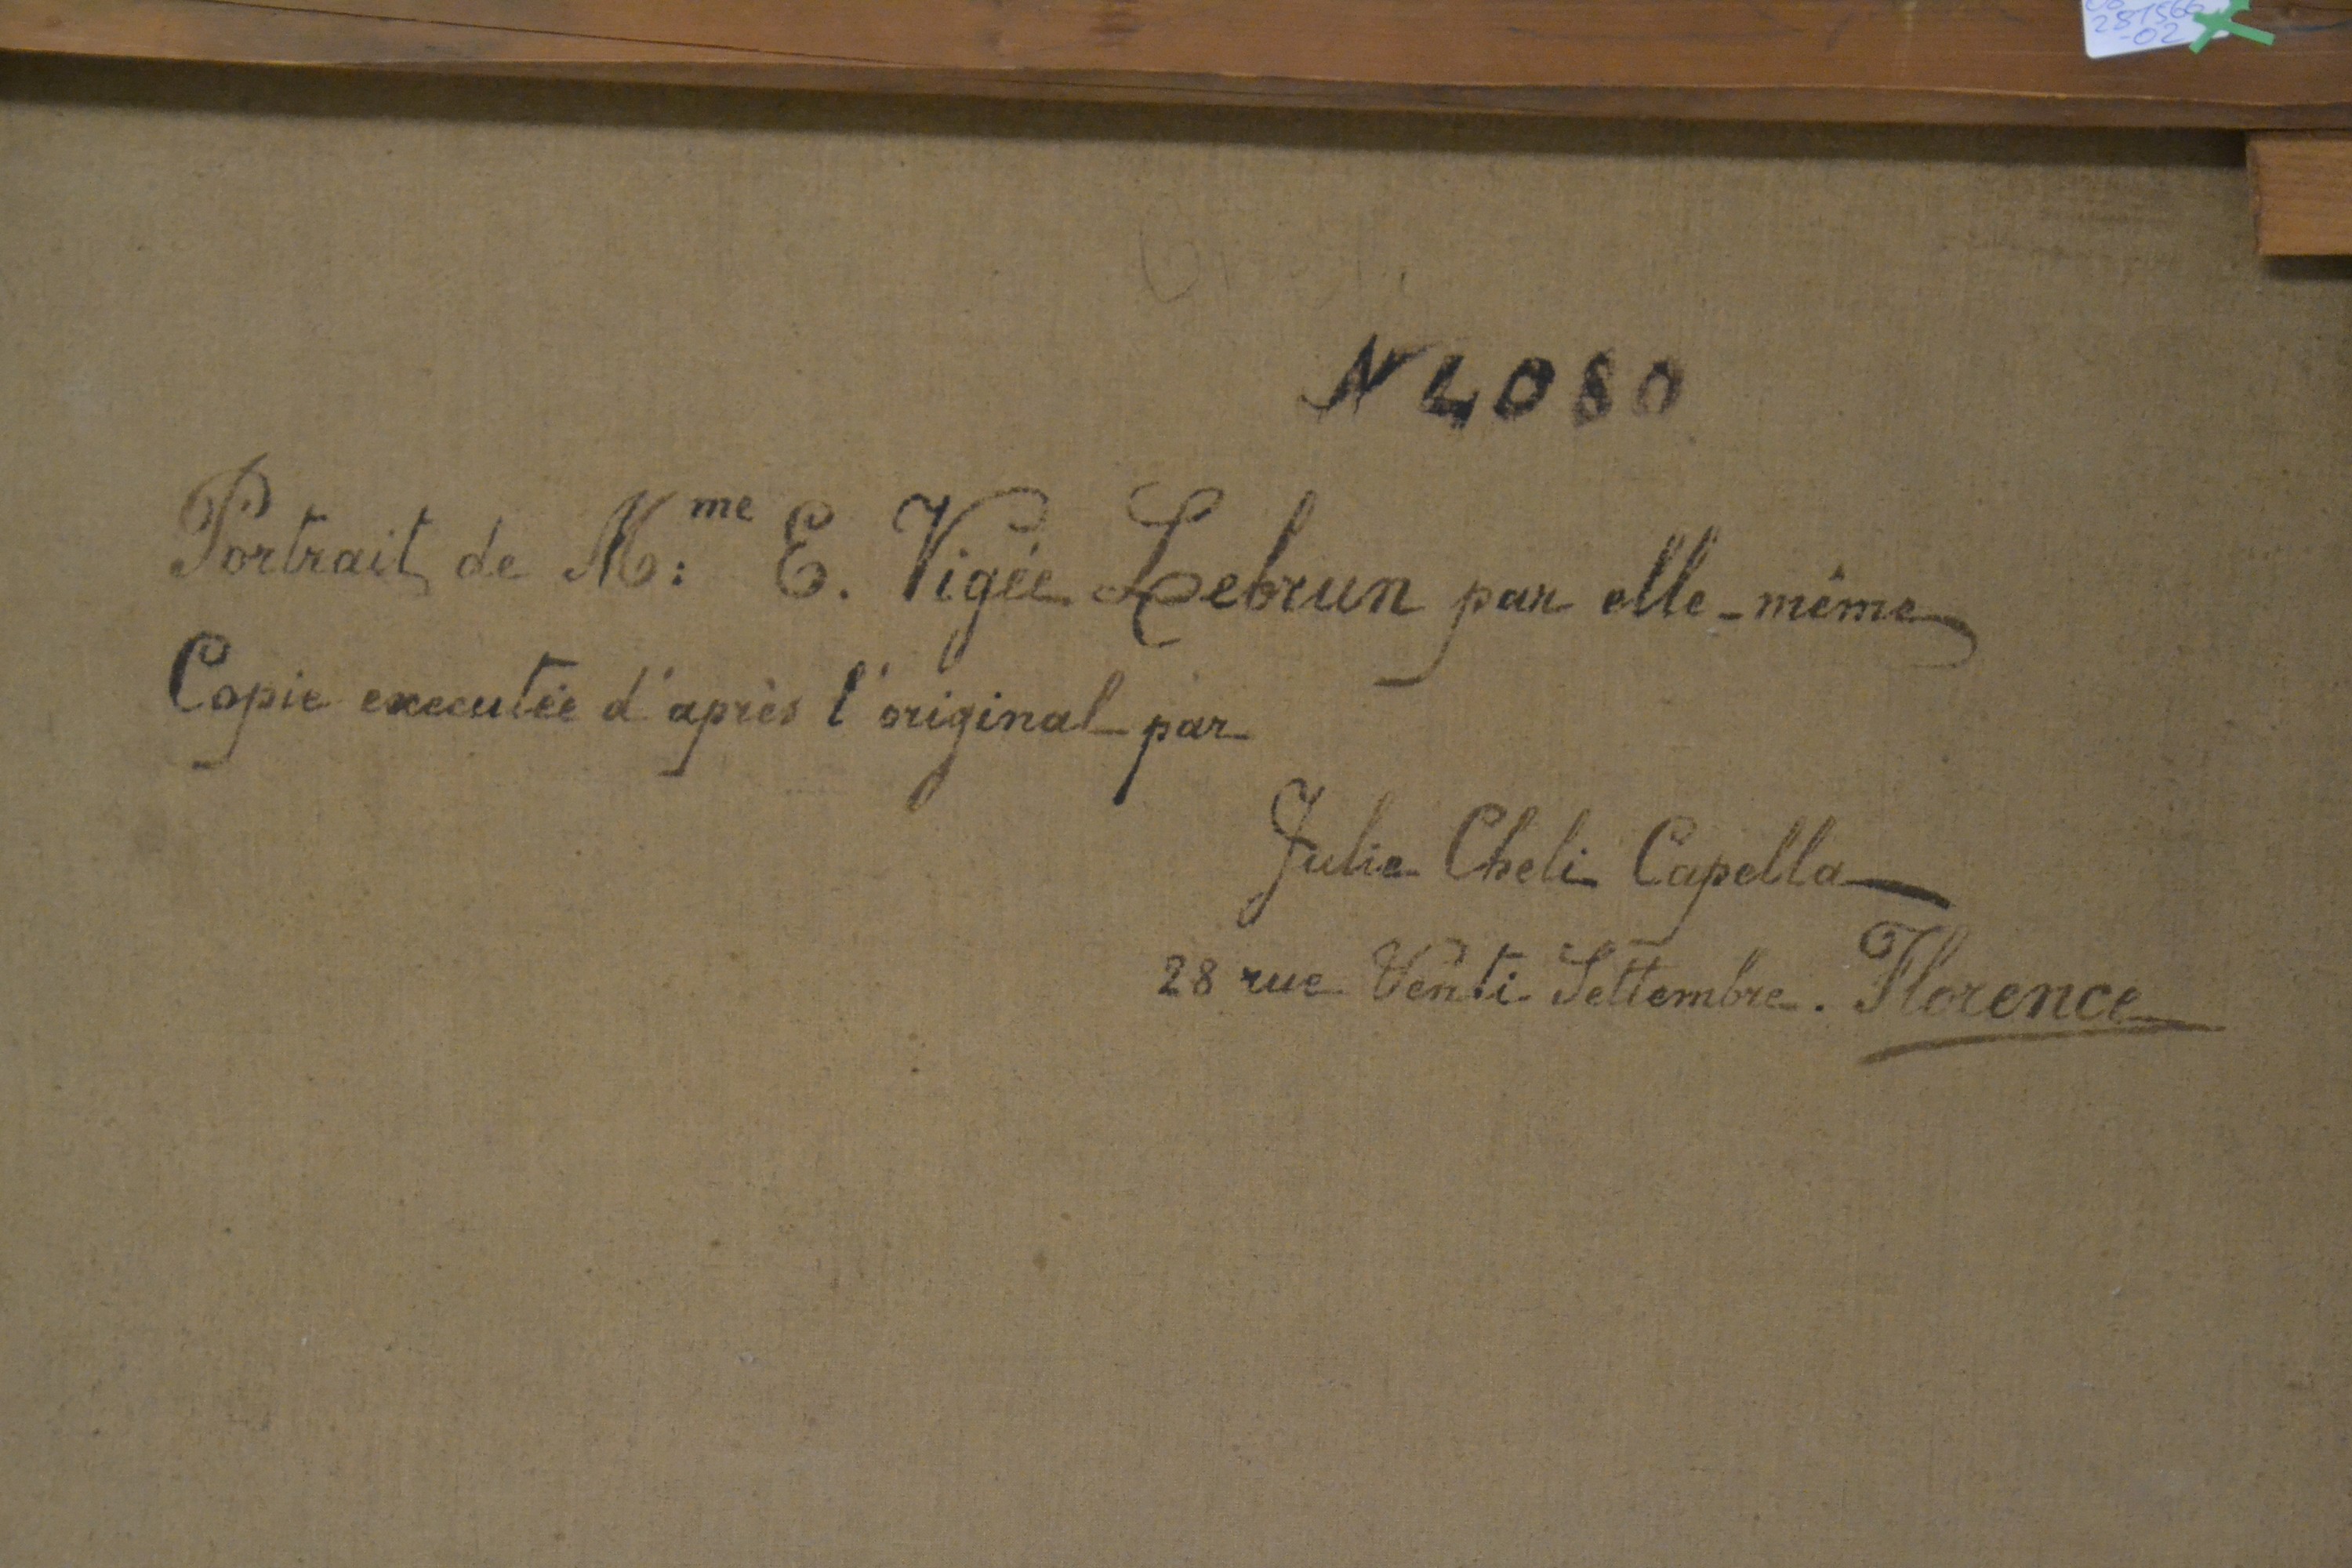 281566
-02
N 4080
Portrait de M:me E. Vigée Lebrun par elle-même
Copie executée d'après l'original par
Julie Cheli Capella
28 rue Venti Settembre. Florence